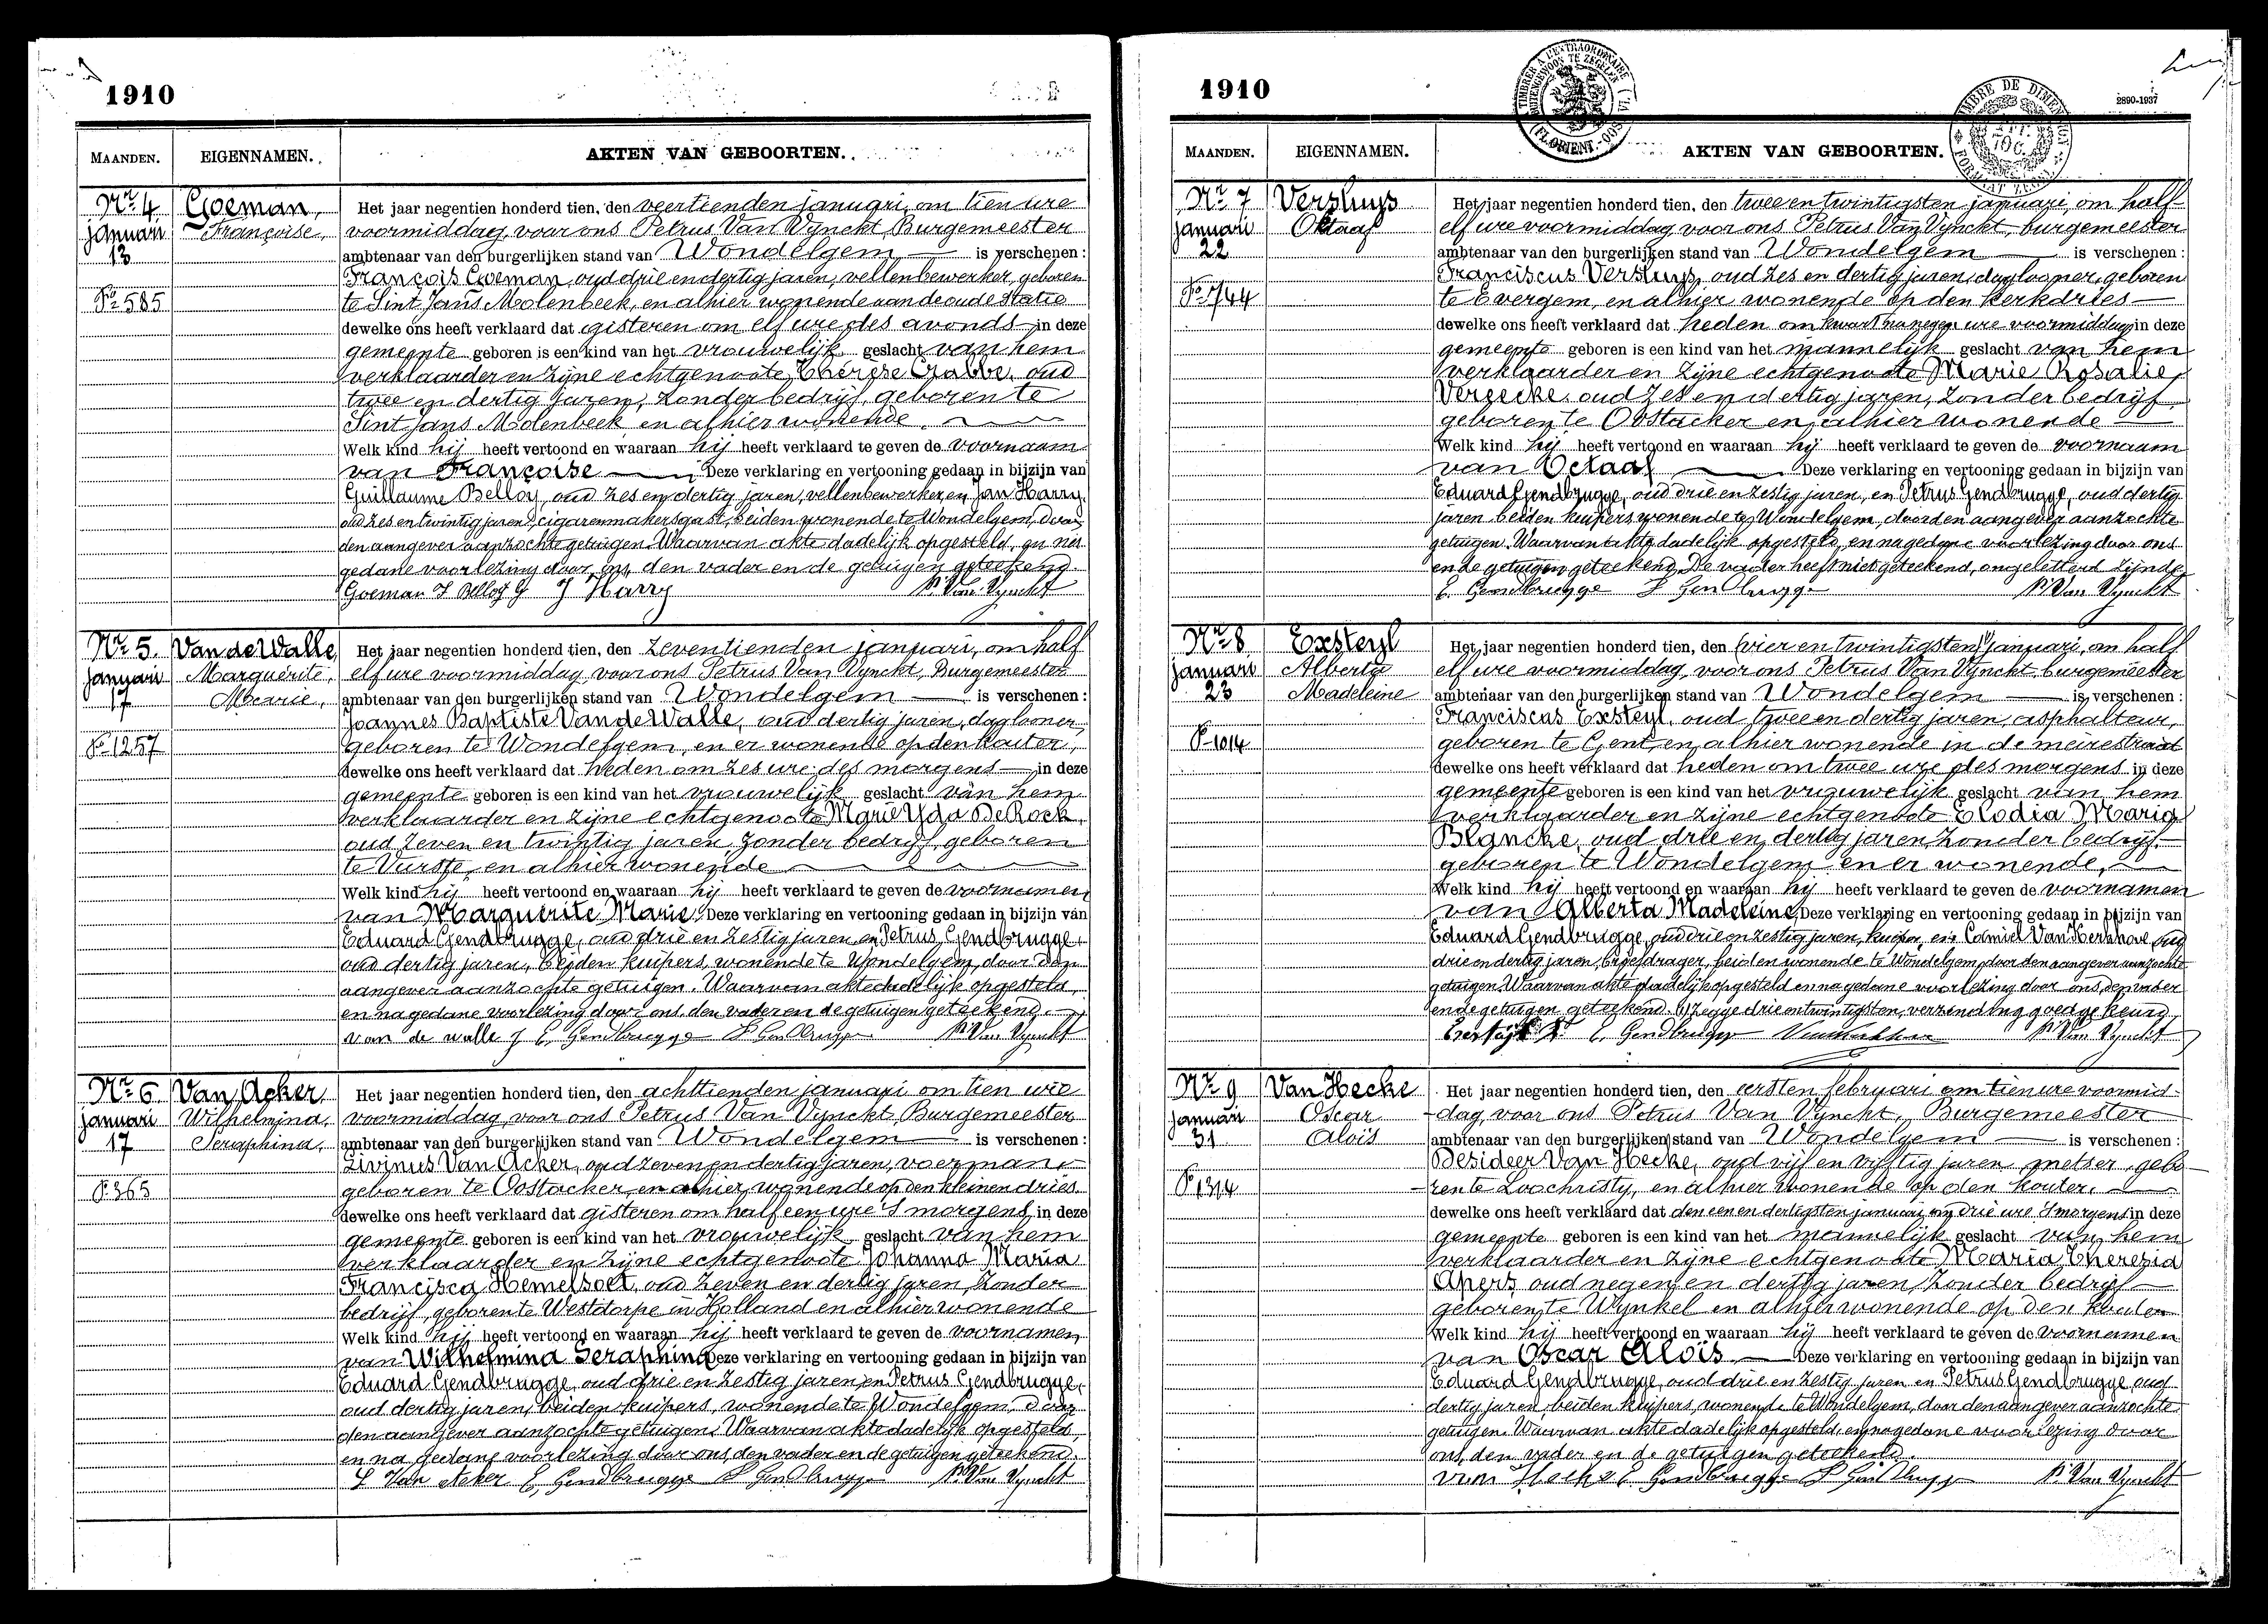 1910
MAANDEN.
EIGENNAMEN.
AKTEN VAN GEBOORTEN.
Nr 4
januari
13
Po 585
Goeman,
Françoise,
Het jaar negentien honderd tien, den veertienden januari, om tien ure
voormiddag, voor ons Petrus Van Vynckt, Burgemeester
ambtenaar van den burgerlijken stand van Wondelgem is verschenen:
François Goeman, oud drie en dertig jaren, vellenbewerker, geboren
te Sint Jans Molenbeek, en alhier wonende aan de oude statie
dewelke ons heeft verklaard dat gisteren om elf ure des avonds in deze
gemeente geboren is een kind van het vrouwelijk geslacht van hem
verklaarder en zijne echtgenoote, Thérèse Crabbe, oud
twee en dertig jaren, zonder bedrijf, geboren te
Sint Jans Molenbeek en alhier wonende.
Welk kind hij heeft vertoond en waaraan hij heeft verklaard te geven de voornaam
van Françoise Deze verklaring en vertooning gedaan in bijzijn van
Guillaume Belloy, oud zes en dertig jaren, vellenbewerker, en Jan Harry,
oud zes en twintig jaren, cigarenmakersgast, beiden wonende te Wondelgem, door
den aangever aanzochte getuigen. Waarvan akte dadelijk opgesteld, en na
gedane voorlezing door ons, den vader en de getuigen geteekend
Goeman F Belloy G J Harry P. Van Vynckt
Nr 5.
januari
17
Po 1257
Van de Walle,
Marguérite,
Marie,
Het jaar negentien honderd tien, den zeventienden januari, om half
elf ure voormiddag, voor ons Petrus Van Vynckt, Burgemeester
ambtenaar van den burgerlijken stand van Wondelgem is verschenen:
Joannes Baptiste Van de Walle, oud dertig jaren, daglooner,
geboren te Wondelgem, en er wonende op den kouter,
dewelke ons heeft verklaard dat heden om zes ure des morgens in deze
gemeente geboren is een kind van het vrouwelijk geslacht van hem
verklaarder en zijne echtgenoote Marie Yda De Rock,
oud zeven en twintig jaren, zonder bedrijf, geboren
te Vurste, en alhier wonende
Welk kind hij heeft vertoond en waaraan hij heeft verklaard te geven de voornamen
van Marguérite Marie. Deze verklaring en vertooning gedaan in bijzijn van
Eduard Gendbrugge, oud drie en zestig jaren, en Petrus Gendbrugge,
oud dertig jaren, beiden kuipers, wonende te Wondelgem, door den
aangever aanzochte getuigen. Waarvan akte dadelijk opgesteld,
en na gedane voorlezing door ons, den vader en de getuigen geteekend.
van de walle J E, Gendbrugge P Gendbrugge P. Van Vynckt
Nr 6
januari
17
Po 365
Van Acker,
Wilhelmina,
Seraphina,
Het jaar negentien honderd tien, den achttienden januari om tien ure
voormiddag, voor ons Petrus Van Vynckt, Burgemeester
ambtenaar van den burgerlijken stand van Wondelgem is verschenen:
Livinus Van Acker, oud zeven en dertig jaren, voerman,
geboren te Oostacker, en alhier wonende op den kleinen dries.
dewelke ons heeft verklaard dat gisteren om half een ure 's morgens in deze
gemeente geboren is een kind van het vrouwelijk geslacht van hem
verklaarder en zijne echtgenoote Johanna Maria
Francisca Hemelsoet, oud zeven en dertig jaren, zonder
bedrijf, geboren te Westdorpe in Holland en alhier wonende
Welk kind hij heeft vertoond en waaraan hij heeft verklaard te geven de voornamen
van Wilhelmina Seraphina Deze verklaring en vertooning gedaan in bijzijn van
Eduard Gendbrugge, oud drie en zestig jaren, en Petrus Gendbrugge,
oud dertig jaren, beiden kuipers, wonende te Wondelgem, door
den aangever aanzochte getuigen. Waarvan akte dadelijk opgesteld,
en na gedane voorlezing door ons, den vader en de getuigen geteekend.
L Van Acker E, Gendbrugge P Gendbrugge P. Van Vynckt
1910
2890-1937
TIMBRE DE DIMENSION
MAANDEN.
EIGENNAMEN.
AKTEN VAN GEBOORTEN.
Nr 7
januari
22
Po 744
Versluys
Oktaaf
Het jaar negentien honderd tien, den twee en twintigsten januari, om half
elf ure voormiddag voor ons Petrus Van Vynckt, burgemeester
ambtenaar van den burgerlijken stand van Wondelgem is verschenen:
Franciscus Versluys, oud zes en dertig jaren, daglooner, geboren
te Evergem, en alhier wonende op den kerkdries
dewelke ons heeft verklaard dat heden om kwart na negen ure voormiddag in deze
gemeente geboren is een kind van het mannelijk geslacht van hem
verklaarder en zijne echtgenoote Marie Rosalie
Versecke, oud zes en dertig jaren, zonder bedrijf
geboren te Oostacker en alhier wonende
Welk kind hij heeft vertoond en waaraan hij heeft verklaard te geven de voornaam
van Octaaf Deze verklaring en vertooning gedaan in bijzijn van
Eduard Gendbrugge, oud drie en zestig jaren, en Petrus Gendbrugge, oud dertig
jaren, beiden kuipers wonende te Wondelgem, door den aangever aanzochte
getuigen. Waarvan akte dadelijk opgesteld, en na gedane voorlezing door ons
en de getuigen geteekend. De vader heeft niet geteekend, ongeletterd zijnde
E. Gendbrugge P Gendbrugge P. Van Vynckt
Nr 8
januari
23
Po 1014
Exsteyl
Alberta
Madeleine
Het jaar negentien honderd tien, den (vier en twintigsten) januari, om half
elf ure voormiddag, voor ons Petrus Van Vynckt, burgemeester
ambtenaar van den burgerlijken stand van Wondelgem is verschenen:
Franciscus Exsteyl, oud twee en dertig jaren, asphalteur,
geboren te Gent, en alhier wonende in de meirestraat
dewelke ons heeft verklaard dat heden om twee ure des morgens in deze
gemeente geboren is een kind van het vrouwelijk geslacht van hem
verklaarder en zijne echtgenoote Elodia Maria
Blancke, oud drie en dertig jaren, zonder bedrijf,
geboren te Wondelgem en er wonende,
Welk kind hij heeft vertoond en waaraan hij heeft verklaard te geven de voornamen
van Alberta Madeleine, Deze verklaring en vertooning gedaan in bijzijn van
Eduard Gendbrugge, oud drie en zestig jaren, kuiper, en Camiel Van Kerkhove, oud
drie en dertig jaren, briefdrager, beiden wonende te Wondelgem, door den aangever aanzochte
getuigen. Waarvan akte dadelijk opgesteld en na gedane voorlezing door ons, den vader
en de getuigen geteekend. (1) zegge drie en twintigsten, verzending goedgekeurd
E, Gendbrugge P. Van Vynckt
Nr 9
januari
31
Po 1314
Van Hecke
Oscar
Aloïs
Het jaar negentien honderd tien, den eersten februari om tien ure voormid-
dag, voor ons Petrus Van Vynckt, Burgemeester
ambtenaar van den burgerlijken stand van Wondelgem is verschenen:
Desideer Van Hecke, oud vijf en vijftig jaren metser, gebo-
ren te Loochristy, en alhier wonende op den kouter.
dewelke ons heeft verklaard dat den een en dertigsten januari om drie ure 's morgens in deze
gemeente geboren is een kind van het mannelijk geslacht van hem
verklaarder en zijne echtgenoote Maria Therezia
Apers oud negen en dertig jaren, zonder bedrijf
geboren te Wynkel en alhier wonende op den kouter
Welk kind hij heeft vertoond en waaraan hij heeft verklaard te geven de voornamen
van Oscar Aloïs Deze verklaring en vertooning gedaan in bijzijn van
Eduard Gendbrugge, oud drie en zestig jaren en Petrus Gendbrugge, oud
dertig jaren, beiden kuipers, wonende te Wondelgem, door den aangever aanzochte
getuigen. Waarvan akte dadelijk opgesteld, en na gedane voorlezing door
ons, den vader en de getuigen geteekend.
van Hecke E. Gendbrugge P Gendbrugge P. Van Vynckt